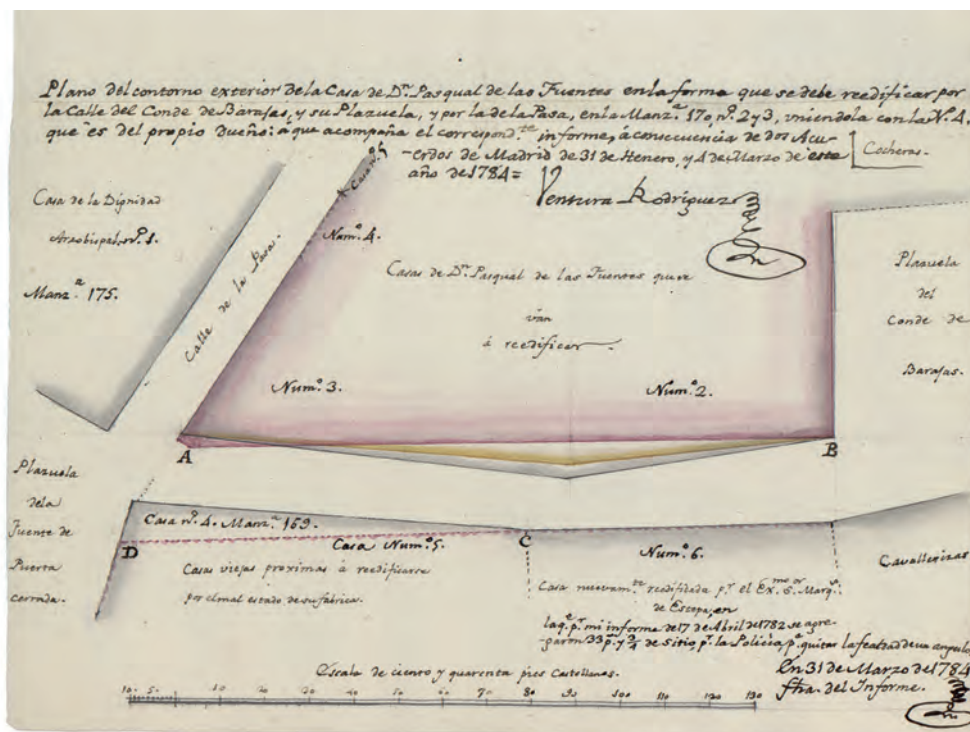 Plano del contorno exterior de la Casa de Dn. Pasqual de las Fuentes en la forma que se debe reedificar por
la Calle del Conde de Barajas, y su Plazuela, y por la de la Pasa, en la Manz.a 170, n.o 2 y 3, vniendola con la N.o 4.
que es del propio Dueño: a que acompaña el correspond.te informe, á consecuencia de dos Acu-
-erdos de Madrid de 31 de Henero, y 4 de Marzo de este
año de 1784=
Cocheras.
Ventura Rodríguez
Casa nº. 5
Casa de la Dignidad
Arzobispal nº. 1.
Manz.a 175.
Calle de la Pasa.
Num.o 4.
Casas de Dn. Pasqual de las Fuentes que se
van
á reedificar.
Plazuela
del
Conde de
Barajas.
Num.o 3.
Num.o 2.
A
B
Plazuela
dela
Fuente de
Puerta
cerrada.
Casa nº. 4. Manz.a 169.
D
Casa Num.o 5.
C
Num.o 6.
Cavallerizas
Casas viejas proximas á reedificarse
por el mal estado de su fabrica.
Casa nuevam.te reedificada p.r el Ex.mo S.or Marq.s
de Estepa, en
la q.e p.r mi informe de 17 de Abril de 1782 se agre-
garon 33 p.s y 3/4 de sitio, p.r la Policia, p.a quitar la fealdad de un angulo,
En 31 de Marzo de 1784
fha. del Informe.
Escala de ciento y quarenta pies Castellanos.
10. 5. 10 20 30 40 50 60 70 80 90 100 110 120 130